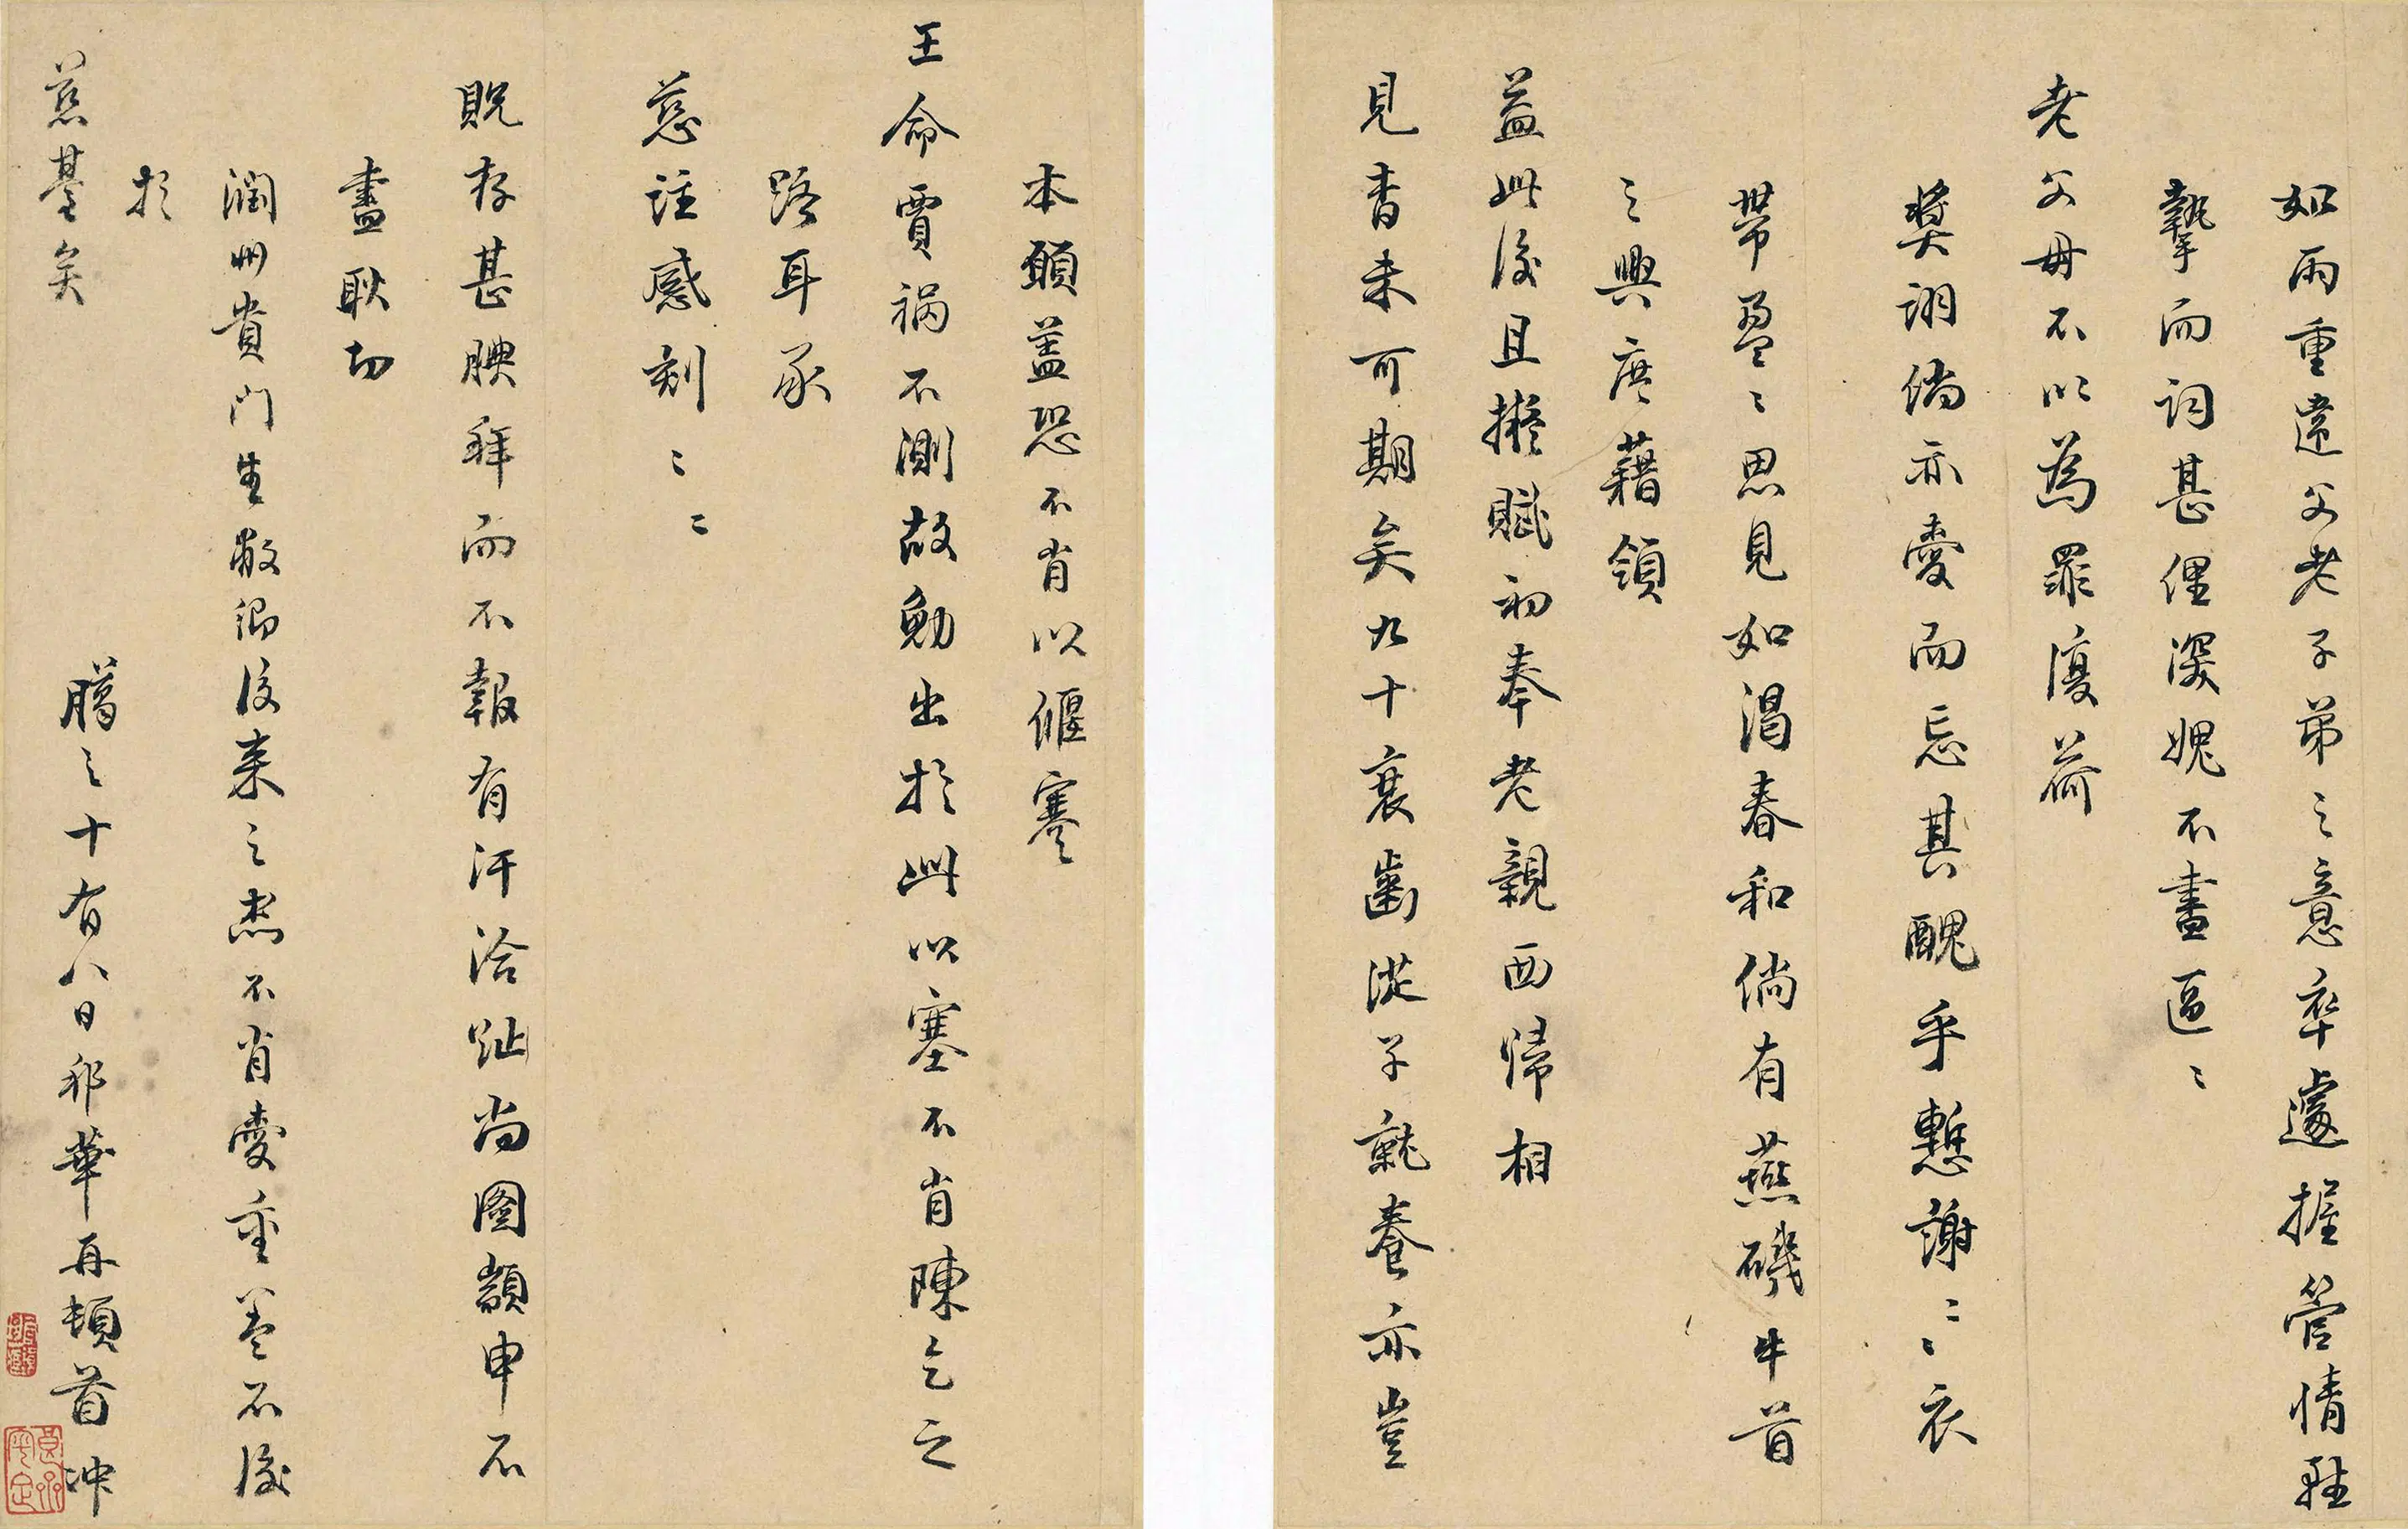 如雨重違父老子弟之意卒遽握管情雖
摯而詞甚俚深媿不盡區〻
老父母不以為罪復荷
獎詡倘亦愛而忘其醜乎慙謝〻〻衣
帶盈〻思見如渴春和倘有燕磯牛首
之興庶藉領
益此後且擬賦初奉老親西歸相
見杳未可期矣九十衰齒從子就養亦豈
本願蓋恐不肖以偃蹇
王命賈禍不測故勉出於此以塞不肖陳乞之
路耳承
慈註感刻〻〻
貺存甚腆拜而不報有汗洽趾尚圖顓申不
盡耿切
潤州貴門生敝鄉後來之杰不肖愛重蓋不後
於
慈基矣
臘之十有八日邪華再頓首冲